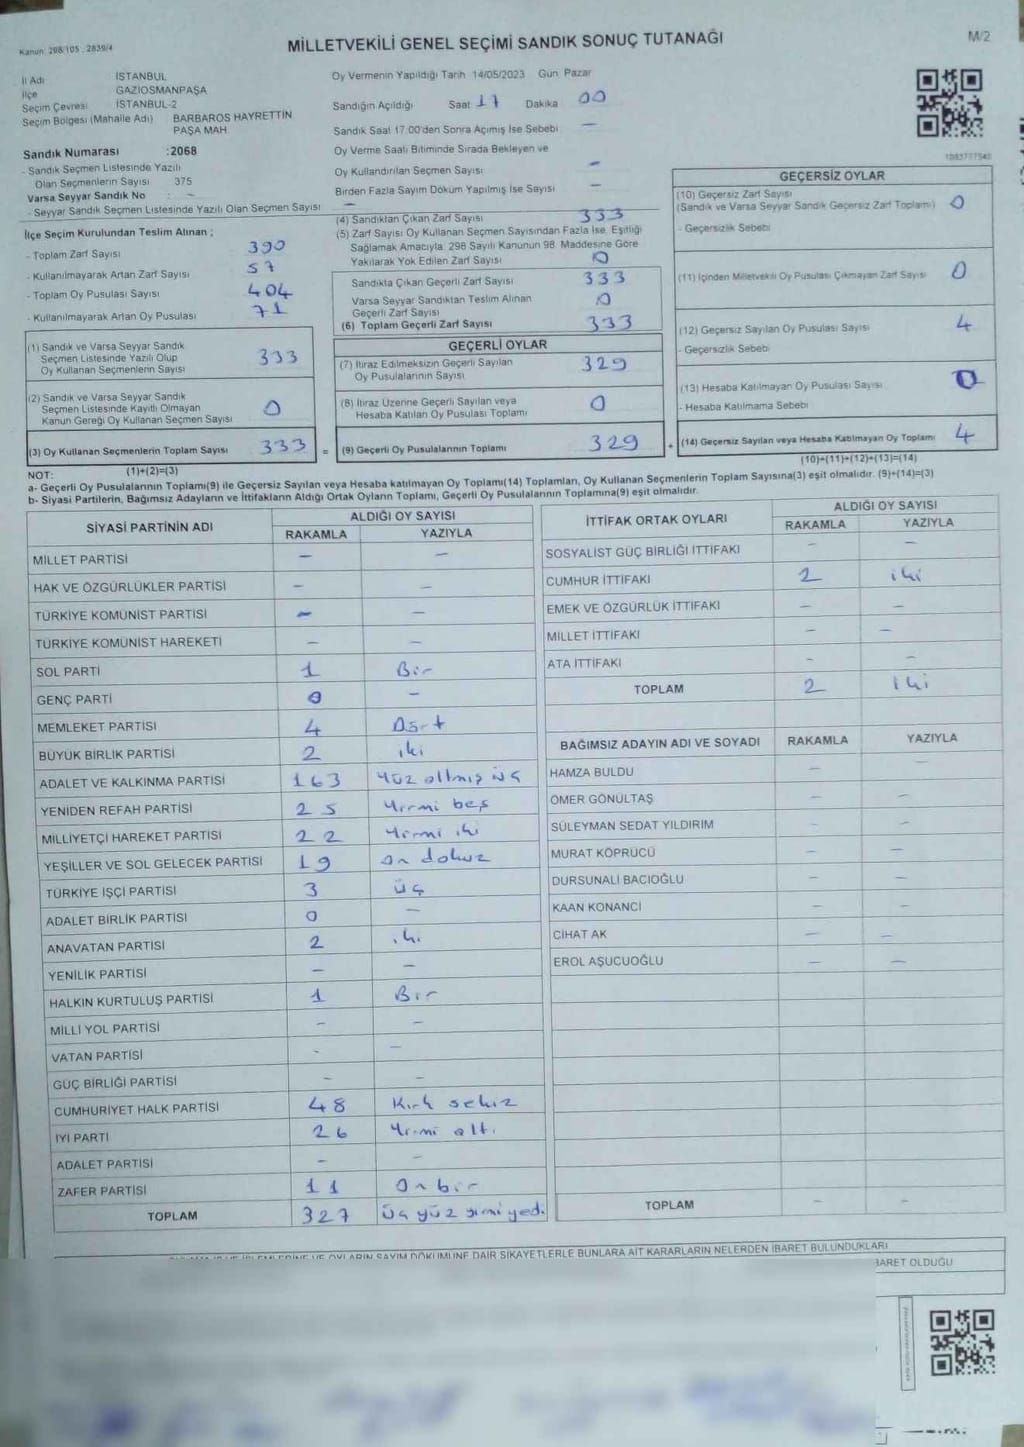 Kanun: 298/105, 2839/4
MİLLETVEKİLİ GENEL SEÇİMİ SANDIK SONUÇ TUTANAĞI
M/2
İl Adı İSTANBUL
İlçe GAZİOSMANPAŞA
Seçim Çevresi İSTANBUL-2
Seçim Bölgesi (Mahalle Adı) BARBAROS HAYRETTİN
PAŞA MAH
Sandık Numarası :2068
- Sandık Seçmen Listesinde Yazılı
Olan Seçmenlerin Sayısı 375
Varsa Seyyar Sandık No : -
- Seyyar Sandık Seçmen Listesinde Yazılı Olan Seçmen Sayısı -
Oy Vermenin Yapıldığı Tarih 14/05/2023 Gün Pazar
Sandığın Açıldığı Saat 17 Dakika 00
Sandık Saat 17:00'den Sonra Açılmış İse Sebebi -
Oy Verme Saati Bitiminde Sırada Bekleyen ve
Oy Kullandırılan Seçmen Sayısı -
Birden Fazla Sayım Döküm Yapılmış İse Sayısı -
İlçe Seçim Kurulundan Teslim Alınan ;
- Toplam Zarf Sayısı 390
- Kullanılmayarak Artan Zarf Sayısı 57
- Toplam Oy Pusulası Sayısı 404
- Kullanılmayarak Artan Oy Pusulası 71
(1) Sandık ve Varsa Seyyar Sandık
Seçmen Listesinde Yazılı Olup
Oy Kullanan Seçmenlerin Sayısı 333
(2) Sandık ve Varsa Seyyar Sandık
Seçmen Listesinde Kayıtlı Olmayan
Kanun Gereği Oy Kullanan Seçmen Sayısı 0
(3) Oy Kullanan Seçmenlerin Toplam Sayısı 333
(1)+(2)=(3)
(4) Sandıktan Çıkan Zarf Sayısı 333
(5) Zarf Sayısı Oy Kullanan Seçmen Sayısından Fazla İse, Eşitliği
Sağlamak Amacıyla, 298 Sayılı Kanunun 98. Maddesine Göre
Yakılarak Yok Edilen Zarf Sayısı 0
Sandıkta Çıkan Geçerli Zarf Sayısı 333
Varsa Seyyar Sandıktan Teslim Alınan
Geçerli Zarf Sayısı 0
(6) Toplam Geçerli Zarf Sayısı 333
GEÇERLİ OYLAR
(7) İtiraz Edilmeksizin Geçerli Sayılan
Oy Pusulalarının Sayısı 329
(8) İtiraz Üzerine Geçerli Sayılan veya
Hesaba Katılan Oy Pusulası Toplamı 0
= (9) Geçerli Oy Pusulalarının Toplamı 329 +
1083777540
GEÇERSİZ OYLAR
(10) Geçersiz Zarf Sayısı
(Sandık ve Varsa Seyyar Sandık Geçersiz Zarf Toplamı) 0
- Geçersizlik Sebebi
(11) İçinden Milletvekili Oy Pusulası Çıkmayan Zarf Sayısı 0
(12) Geçersiz Sayılan Oy Pusulası Sayısı 4
- Geçersizlik Sebebi
(13) Hesaba Katılmayan Oy Pusulası Sayısı 0
- Hesaba Katılmama Sebebi
(14) Geçersiz Sayılan veya Hesaba Katılmayan Oy Toplamı 4
(10)+(11)+(12)+(13)=(14)
NOT:
a- Geçerli Oy Pusulalarının Toplamı(9) ile Geçersiz Sayılan veya Hesaba katılmayan Oy Toplamı(14) Toplamları, Oy Kullanan Seçmenlerin Toplam Sayısına(3) eşit olmalıdır. (9)+(14)=(3)
b- Siyasi Partilerin, Bağımsız Adayların ve İttifakların Aldığı Ortak Oyların Toplamı, Geçerli Oy Pusulalarının Toplamına(9) eşit olmalıdır.
SİYASİ PARTİNİN ADI ALDIĞI OY SAYISI
RAKAMLA YAZIYLA
MİLLET PARTİSİ - -
HAK VE ÖZGÜRLÜKLER PARTİSİ - -
TÜRKİYE KOMÜNİST PARTİSİ - -
TÜRKİYE KOMÜNİST HAREKETİ - -
SOL PARTİ 1 Bir
GENÇ PARTİ 0 -
MEMLEKET PARTİSİ 4 Dört
BÜYÜK BİRLİK PARTİSİ 2 iki
ADALET VE KALKINMA PARTİSİ 163 Yüz altmış üç
YENİDEN REFAH PARTİSİ 25 Yirmi beş
MİLLİYETÇİ HAREKET PARTİSİ 22 Yirmi iki
YEŞİLLER VE SOL GELECEK PARTİSİ 19 on dokuz
TÜRKİYE İŞÇİ PARTİSİ 3 üç
ADALET BİRLİK PARTİSİ 0 -
ANAVATAN PARTİSİ 2 iki
YENİLİK PARTİSİ - -
HALKIN KURTULUŞ PARTİSİ 1 Bir
MİLLİ YOL PARTİSİ - -
VATAN PARTİSİ - -
GÜÇ BİRLİĞİ PARTİSİ - -
CUMHURİYET HALK PARTİSİ 48 Kırk sekiz
İYİ PARTİ 26 Yirmi altı
ADALET PARTİSİ - -
ZAFER PARTİSİ 11 On bir
TOPLAM 327 üç yüz yirmi yedi
İTTİFAK ORTAK OYLARI ALDIĞI OY SAYISI
RAKAMLA YAZIYLA
SOSYALİST GÜÇ BİRLİĞİ İTTİFAKI - -
CUMHUR İTTİFAKI 2 iki
EMEK VE ÖZGÜRLÜK İTTİFAKI - -
MİLLET İTTİFAKI - -
ATA İTTİFAKI - -
TOPLAM 2 iki
BAĞIMSIZ ADAYIN ADI VE SOYADI RAKAMLA YAZIYLA
HAMZA BULDU - -
ÖMER GÖNÜLTAŞ - -
SÜLEYMAN SEDAT YILDIRIM - -
MURAT KÖPRÜCÜ - -
DURSUNALİ BACIOĞLU - -
KAAN KONANCI - -
CİHAT AK - -
EROL AŞUCUOĞLU - -
TOPLAM - -
OYLARIN SAYIM DÖKÜMÜNE DAİR ŞİKAYETLERLE BUNLARA AİT KARARLARIN NELERDEN İBARET BULUNDUKLARI
İBARET OLDUĞU